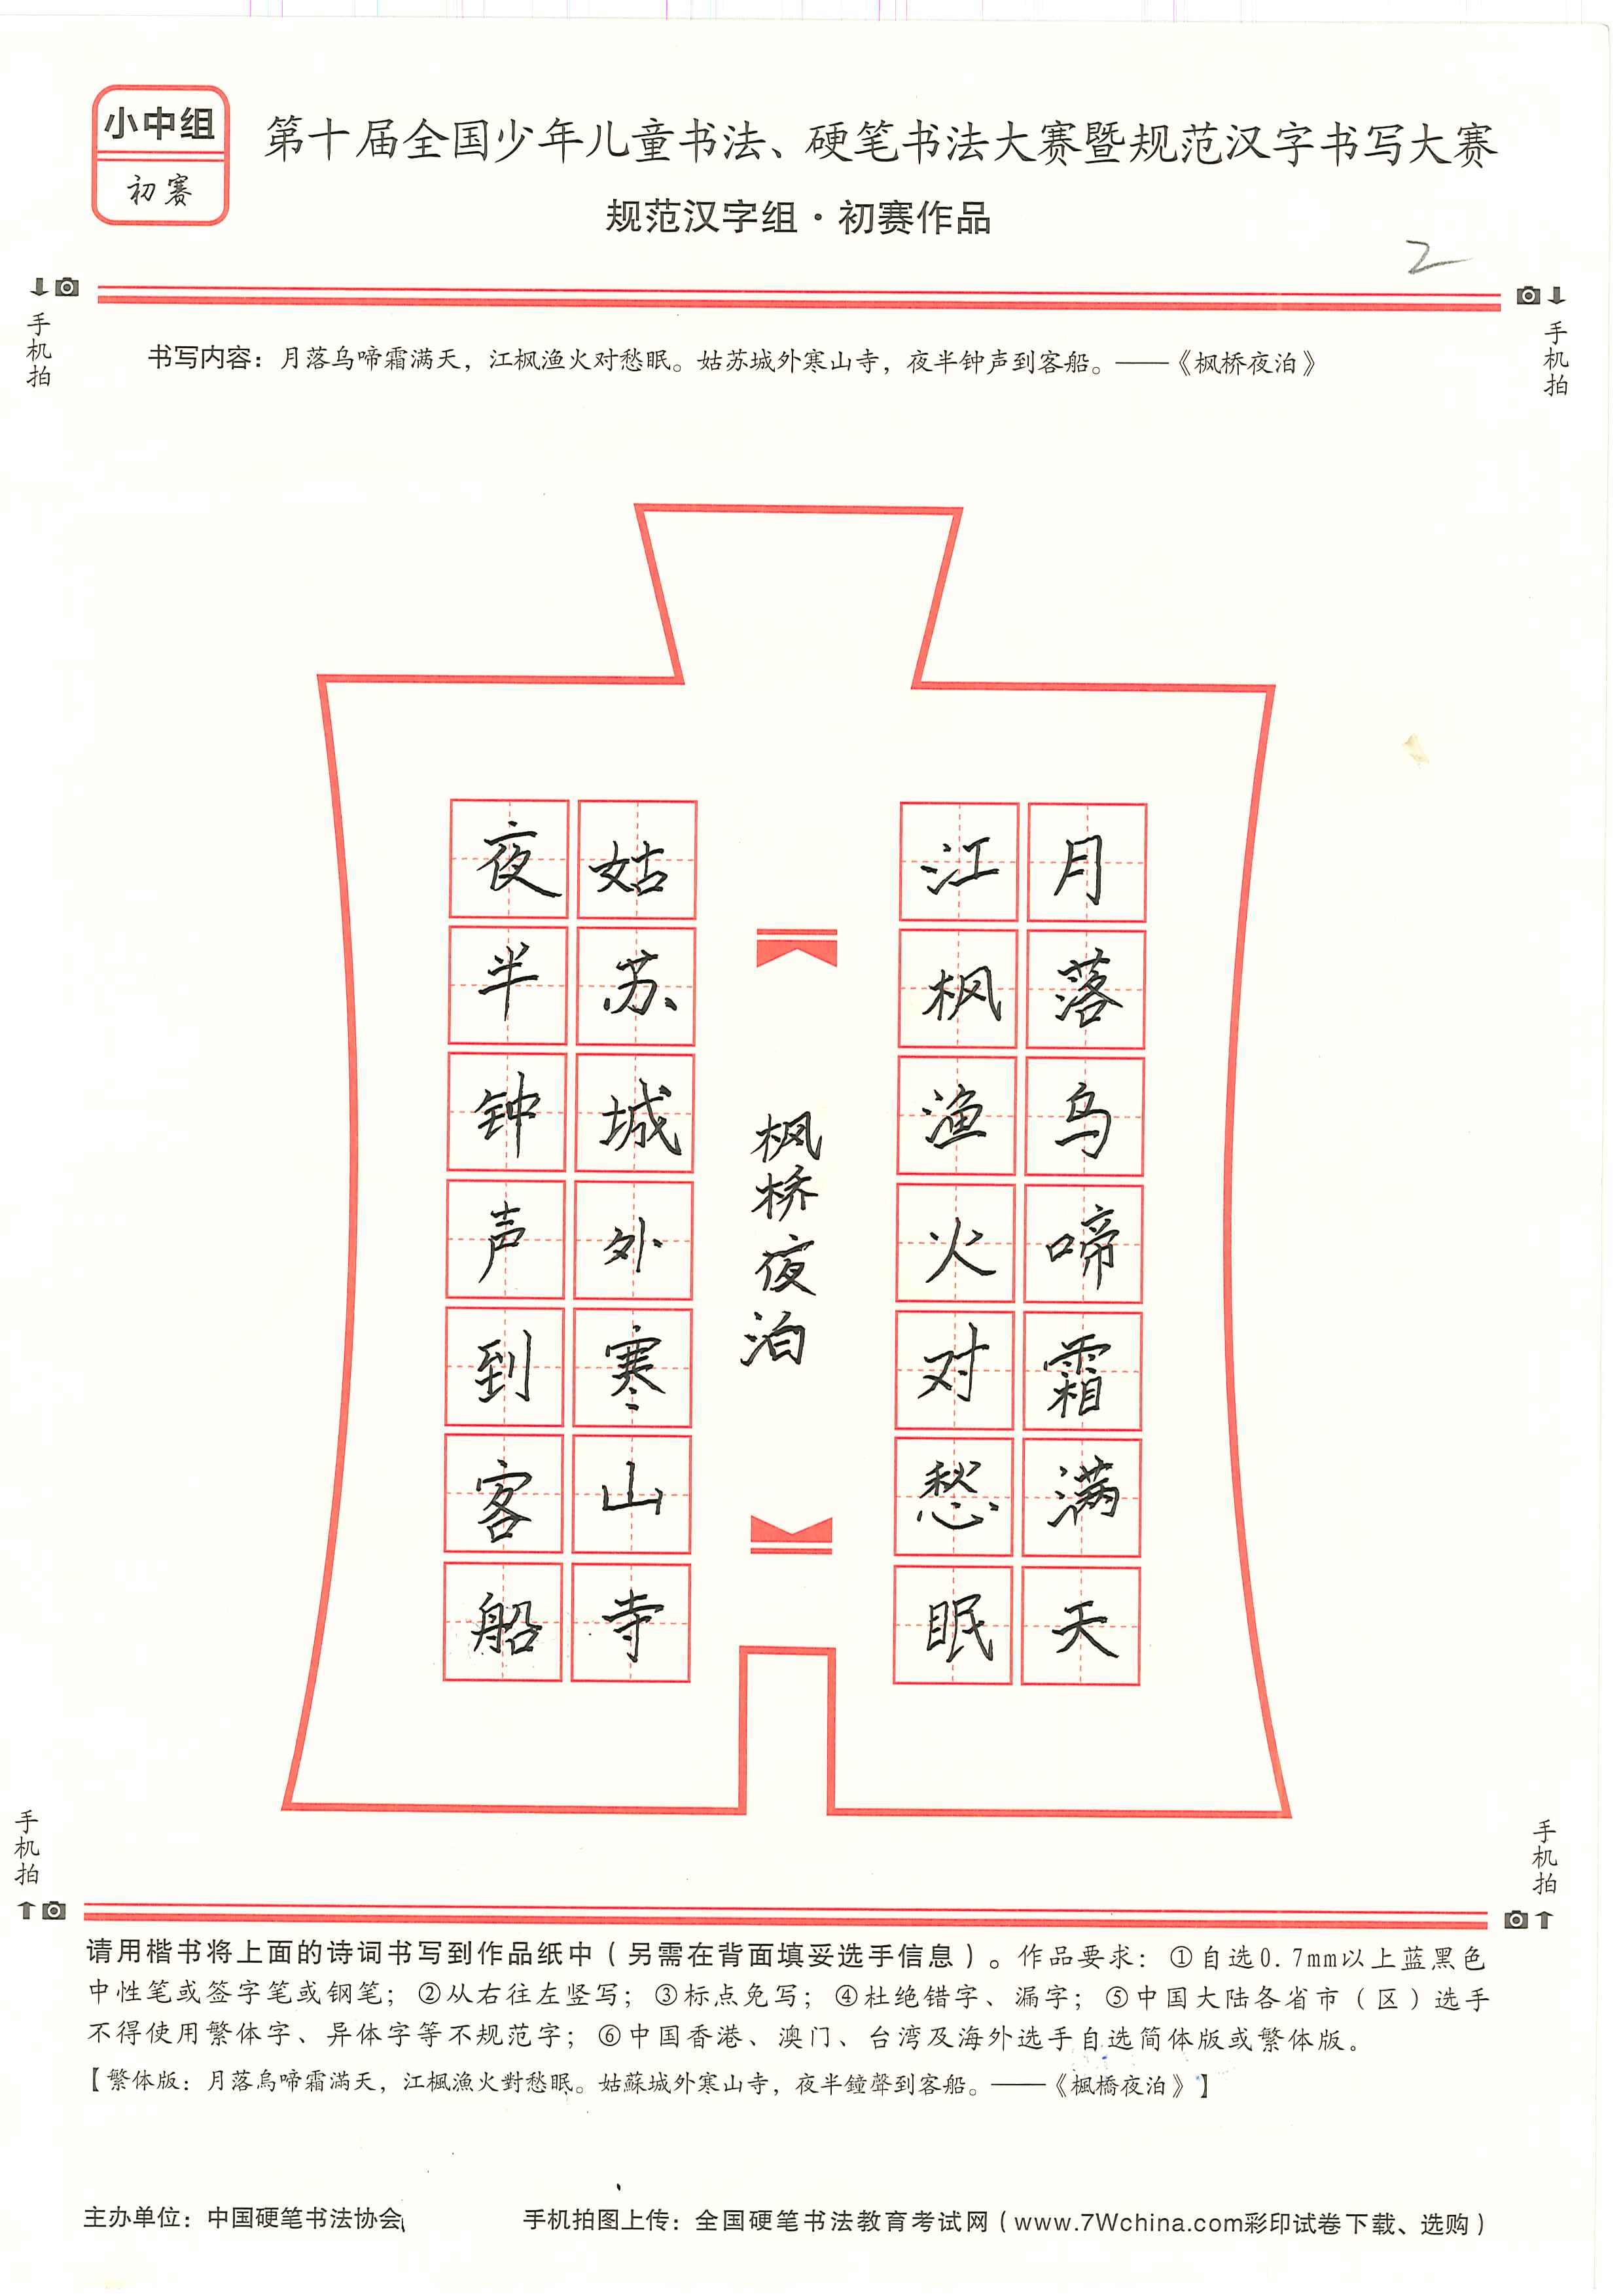 小中组
初赛
第十届全国少年儿童书法、硬笔书法大赛暨规范汉字书写大赛
规范汉字组·初赛作品
2
手机拍
手机拍
书写内容：月落乌啼霜满天，江枫渔火对愁眠。姑苏城外寒山寺，夜半钟声到客船。——《枫桥夜泊》
月落乌啼霜满天
江枫渔火对愁眠
枫桥夜泊
姑苏城外寒山寺
夜半钟声到客船
手机拍
手机拍
请用楷书将上面的诗词书写到作品纸中（另需在背面填妥选手信息）。作品要求：①自选0.7mm以上蓝黑色
中性笔或签字笔或钢笔；②从右往左竖写；③标点免写；④杜绝错字、漏字；⑤中国大陆各省市（区）选手
不得使用繁体字、异体字等不规范字；⑥中国香港、澳门、台湾及海外选手自选简体版或繁体版。
【繁体版：月落烏啼霜滿天，江楓漁火對愁眠。姑蘇城外寒山寺，夜半鐘聲到客船。——《楓橋夜泊》】
主办单位：中国硬笔书法协会
手机拍图上传：全国硬笔书法教育考试网（www.7Wchina.com彩印试卷下载、选购）